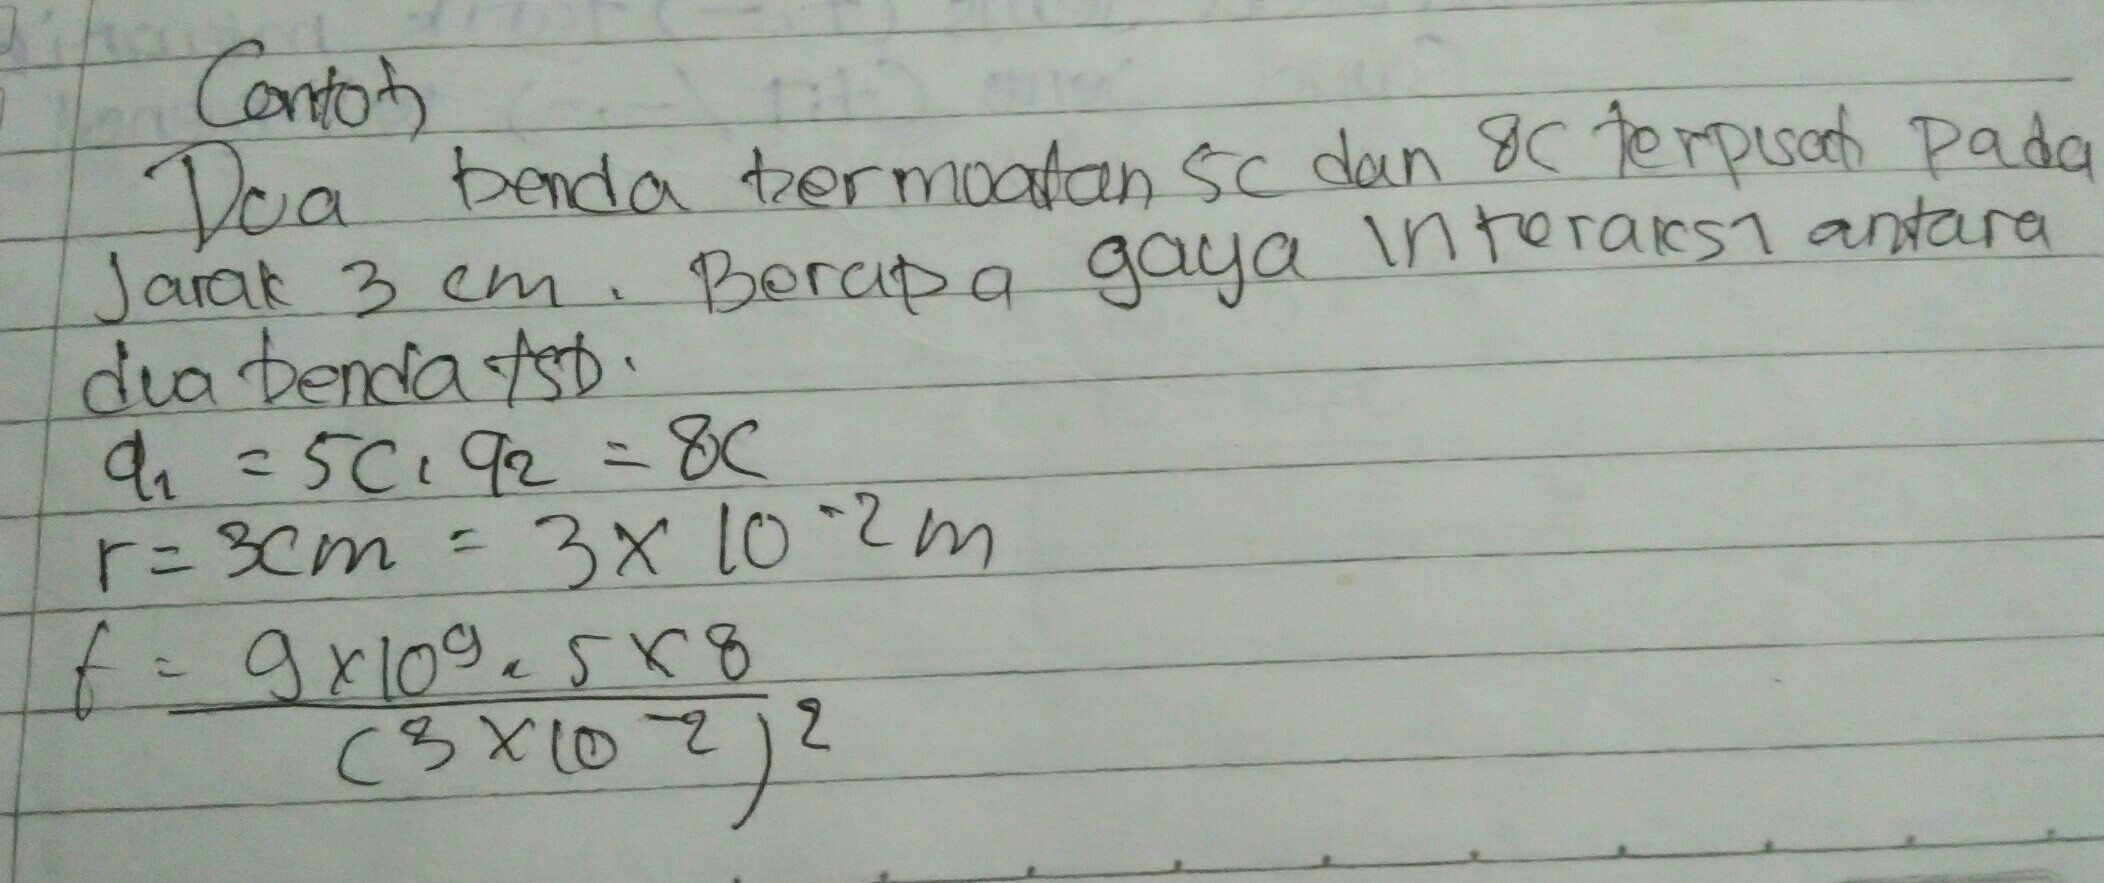 Contoh
Dua benda bermuatan 5C dan 8C terpisah pada
Jarak 3 cm. Berapa gaya interaksi antara
dua benda tsb.
q1 = 5C, q2 = 8C
r = 3cm = 3 x 10^-2 m
f = 9 x 10^9 . 5 x 8
(3 x 10^-2)^2